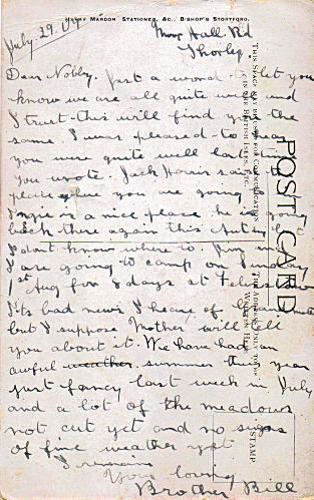 Henry Mardon Stationer, &c., Bishop's Stortford.
July 29. 09
Moor Hall Rd
Thorley
Dear Nobby. Just a word to let you
know we are all quite well and
I trust this will find you the
same. I was pleased to hear
you were quite well last time
you wrote. Jack Harris said
place you are going to
is a nice place he is going
back there again this
I don't know where to
I are going to camp on Sunday
1st Aug for 8 days at
Its bad news I hear of
but I suppose Mother will tell
you about it. We have had an
awful weather summer this year
just fancy last week in July
and a lot of the meadows
not cut yet and no signs
of fine weather yet
I remain
Your loving
Brother Bill
POST CARD
This Space may be used for Communication
in the British Isles, etc.
The Address only to be
Written Here
STAMP